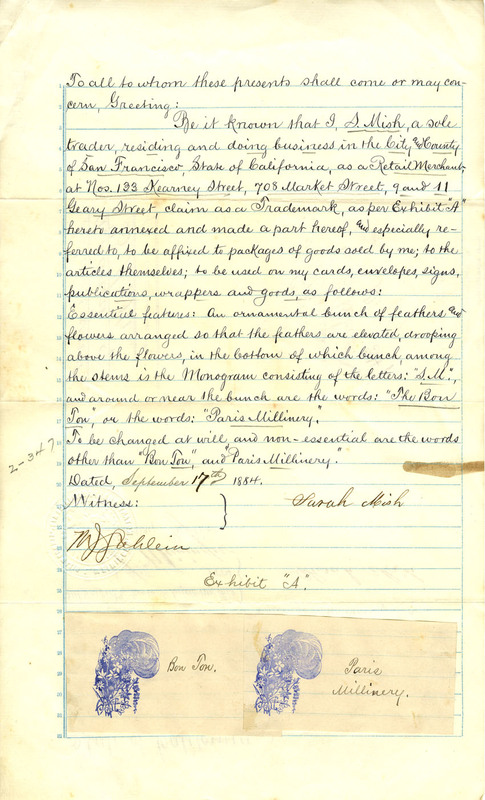 To all to whom these presents shall come or may con-
cern, Greeting:
Be it known that I, S. Mish, a sole
trader, residing and doing business in the City and County
of San Francisco, State of California, as a Retail Merchant,
at Nos. 133 Kearney Street, 708 Market Street, 9 and 11
Geary Street, claim as a Trademark, as per Exhibit "A"
hereto annexed and made a part hereof, and especially re-
ferred to, to be affixed to packages of goods sold by me; to the
articles themselves; to be used on my cards, envelopes, signs,
publications, wrappers and goods, as follows:
Essential features: An ornamental bunch of feathers and
flowers arranged so that the feathers are elevated, drooping
above the flowers, in the bottom of which bunch, among
the stems is the Monogram consisting of the letters: "S.M.",
and around or near the bunch are the words: "The Bon
Ton", or the words: "Paris Millinery."
To be changed at will and non-essential are the words
other than "Bon Ton", and "Paris Millinery."
2-347
Dated, September 17th 1884.
Witness:
Sarah Mish
Exhibit "A".
Bon Ton.
Paris
Millinery.